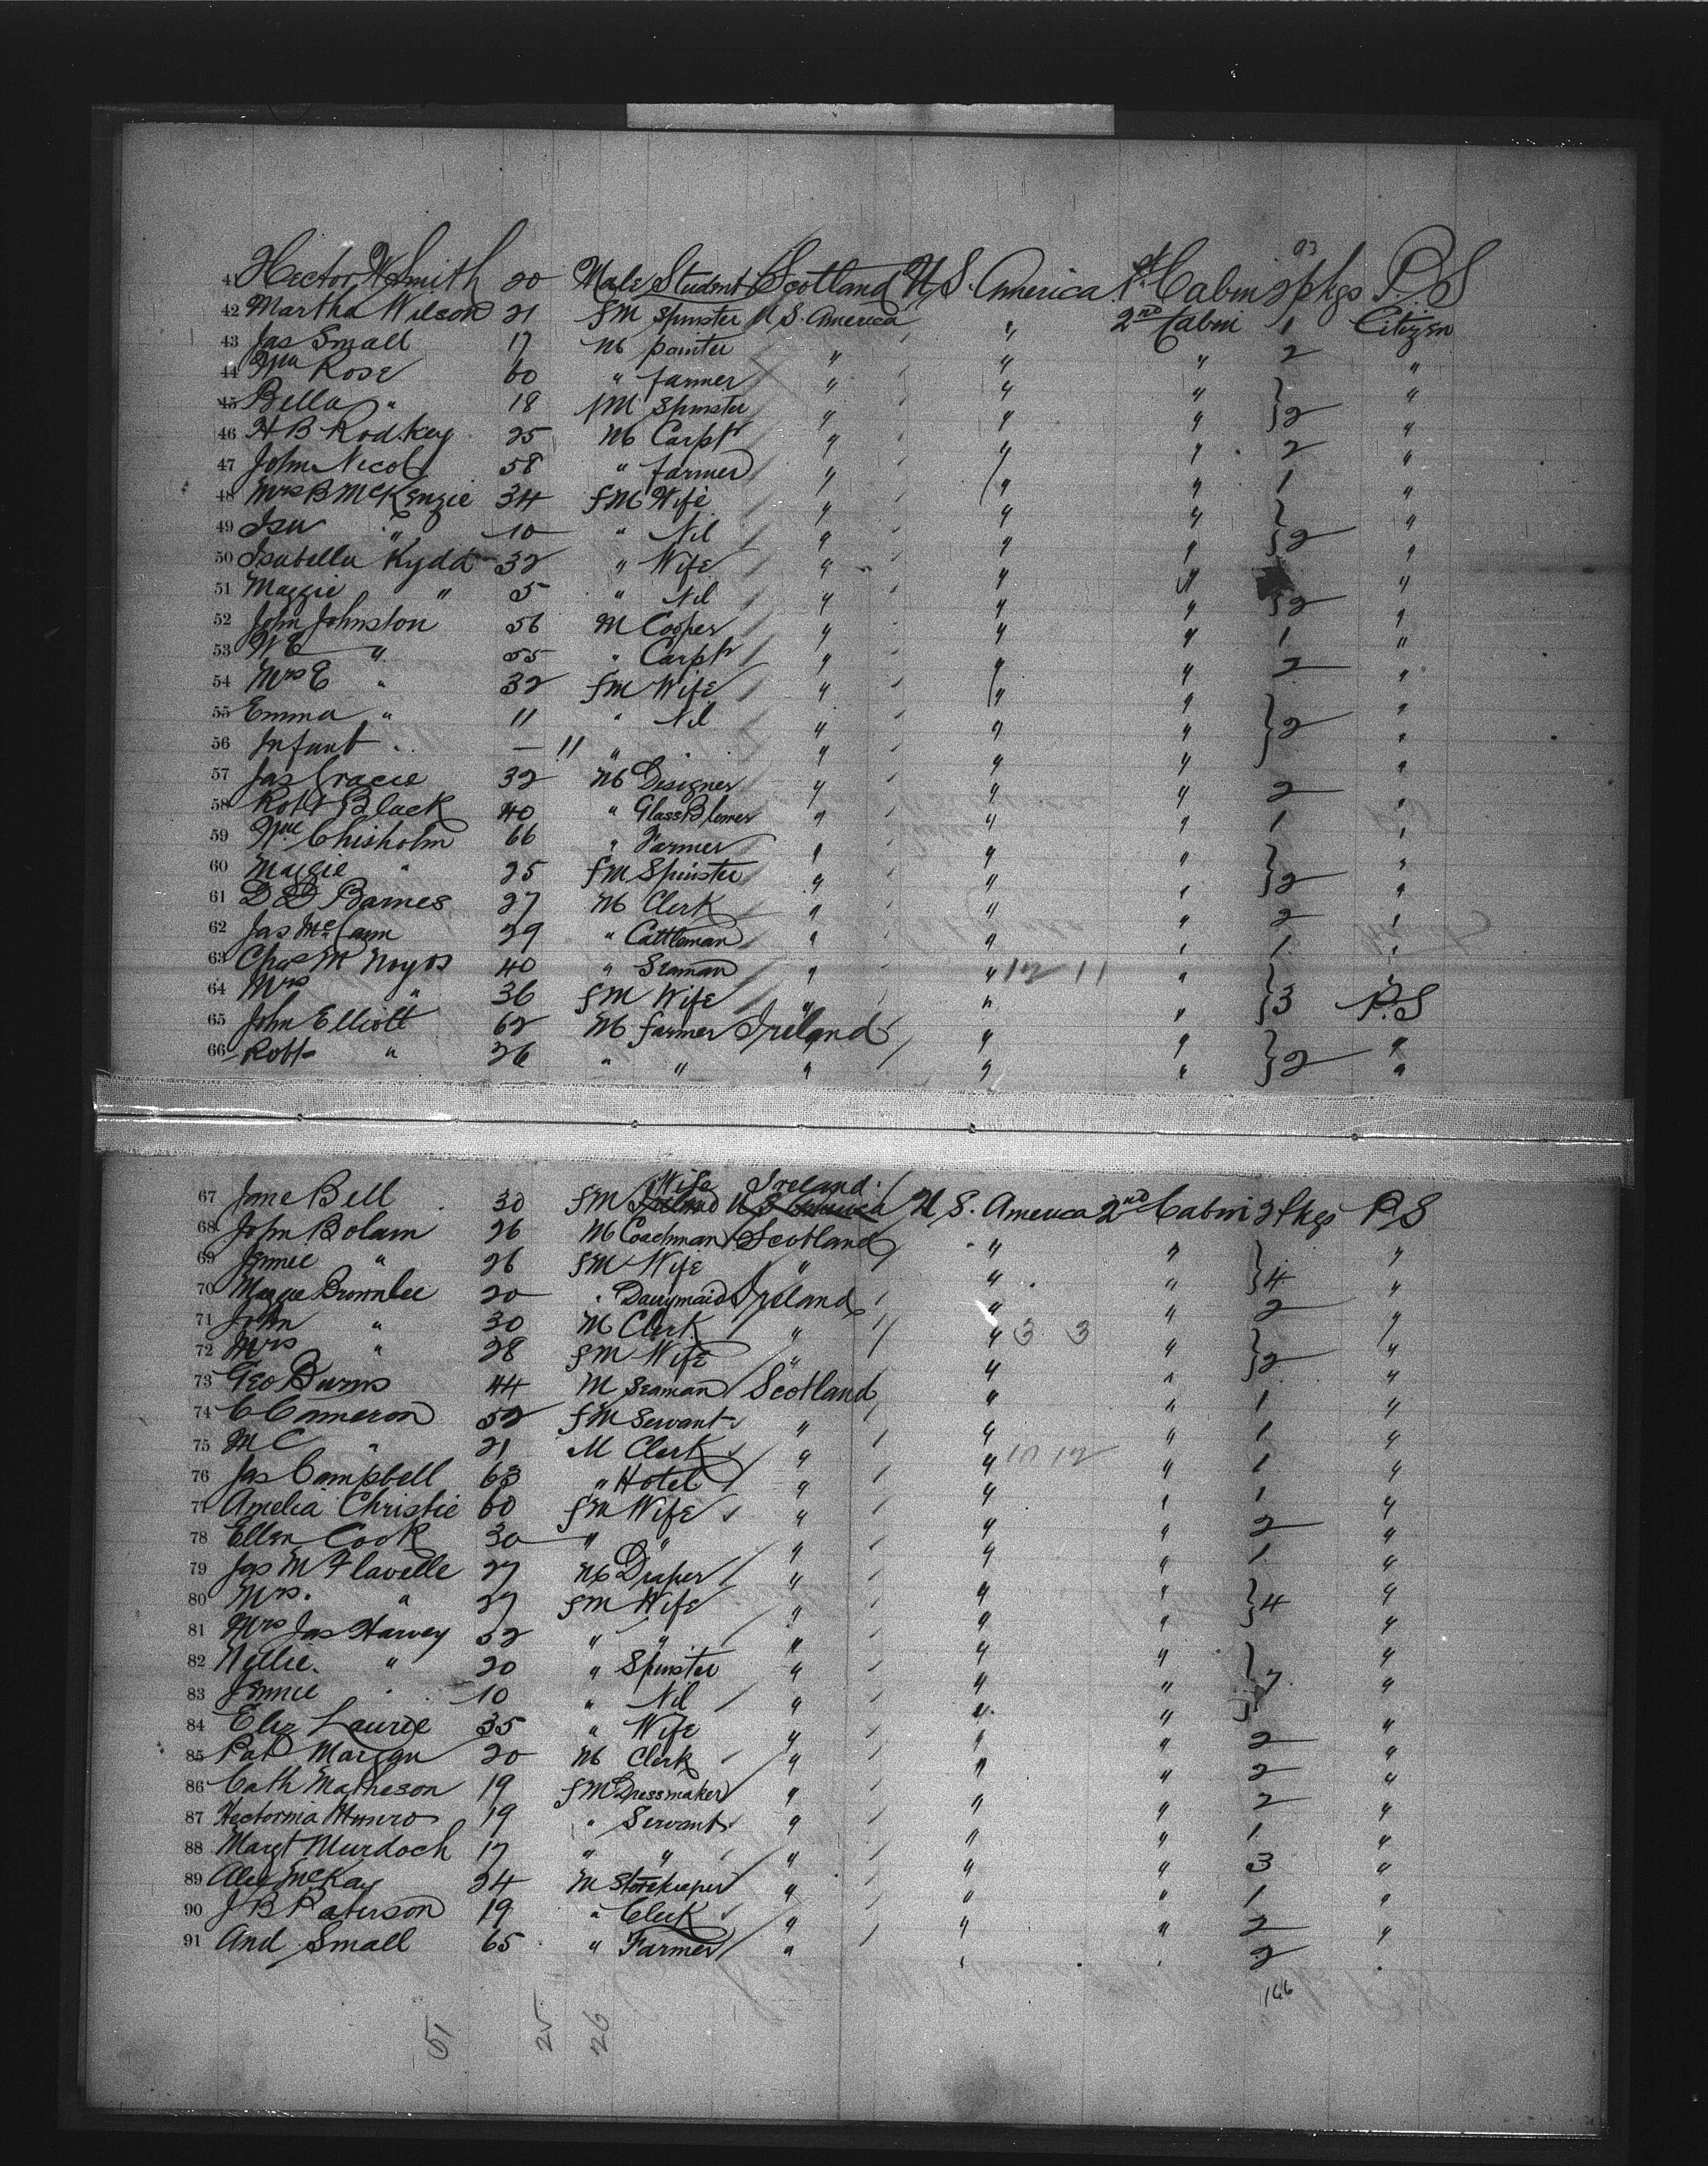 93
41 Hector W Smith 20 Male Student Scotland U.S. America 1st Cabin 2 pkgs P.S
42 Martha Wilson 21 fM Spinster U S. America " 2nd Cabin 1 Citizen
43 Jas Small 17 M painter " " " 2 "
44 Wm Rose 60 " farmer " " " "
45 Bella " 18 fM Spinster " " " } 2 "
46 H B Rodkey 25 M Carptr " " " 2 "
47 John Nicol 58 " farmer " " " 1 "
48 Mrs B McKenzie 34 fM Wife " " " "
49 Isa " 10 " Nil " " " } 2 "
50 Isabella Kydd 32 " Wife " " " "
51 Maggie " 5 " Nil " " " } 2 "
52 John Johnston 56 M Cooper " " " 1 "
53 " 55 " Carptr " " " 2 "
54 Mrs E " 32 fM Wife " " " "
55 Emma " 11 " Nil " " " } 2 "
56 Infant " — 11 " " " " "
57 Jas Gracie 32 M Designer " " " 2 "
58 Robt Black 40 " Glass Blower " " " 1 "
59 Wm Chisholm 66 " Farmer " " " "
60 Maggie " 25 fM Spinster " " " } 2 "
61 D D Barnes 27 M Clerk " " " 2 "
62 Jas McCann 39 " Cattleman " " " 1 "
63 Chas M Noyes 40 " Seaman " " 12 11 "
64 Mrs " 36 fM Wife " " " } 3 P.S
65 John Elliott 62 M farmer Ireland " " "
66 Robt " 26 " " " " " } 2 "
Wife Ireland
67 Jane Bell 30 fM U S. America 2nd Cabin 2 pkgs P.S
68 John Bolam 26 M Coachman Scotland " " "
69 Jennie " 26 fM Wife " " " } 4 "
70 Maggie Brownlee 20 " Dairymaid Ireland " " 2 "
71 John " 30 M Clerk " " 3 3 " "
72 Mrs " 28 fM Wife " " " } 2 "
73 Geo Burns 44 M Seaman Scotland " " 1 "
74 C Cameron 52 fM Servant " " " 1 "
75 M C " 21 M Clerk " " 12 " 1 "
76 Jas Campbell 63 " Hotel " " " 1 "
77 Amelia Christie 60 fM Wife " " " 2 "
78 Ellen Cook 30 " " " " " 1 "
79 Jas M Flavelle 27 M Draper " " " "
80 Mrs. " 27 fM Wife " " " } 4 "
81 Mrs Jas Harvey 52 " " " " " "
82 Nellie " 20 " Spinster " " " } 7 "
83 Jennie " 10 " Nil " " " "
84 Eliz Laurie 35 " Wife " " " 2 "
85 Pat Morgan 20 M Clerk " " " 2 "
86 Cath Matheson 19 fM Dressmaker " " " 2 "
87 Hectorina Munro 19 " Servant " " " 1 "
88 Margt Murdoch 17 " " " " " 3 "
89 Alex McKay 24 M Storekeeper " " " 1 "
90 J B Paterson 19 " Clerk " " " 2 "
91 And Small 65 " Farmer " " " 2 "
166
51 25 26